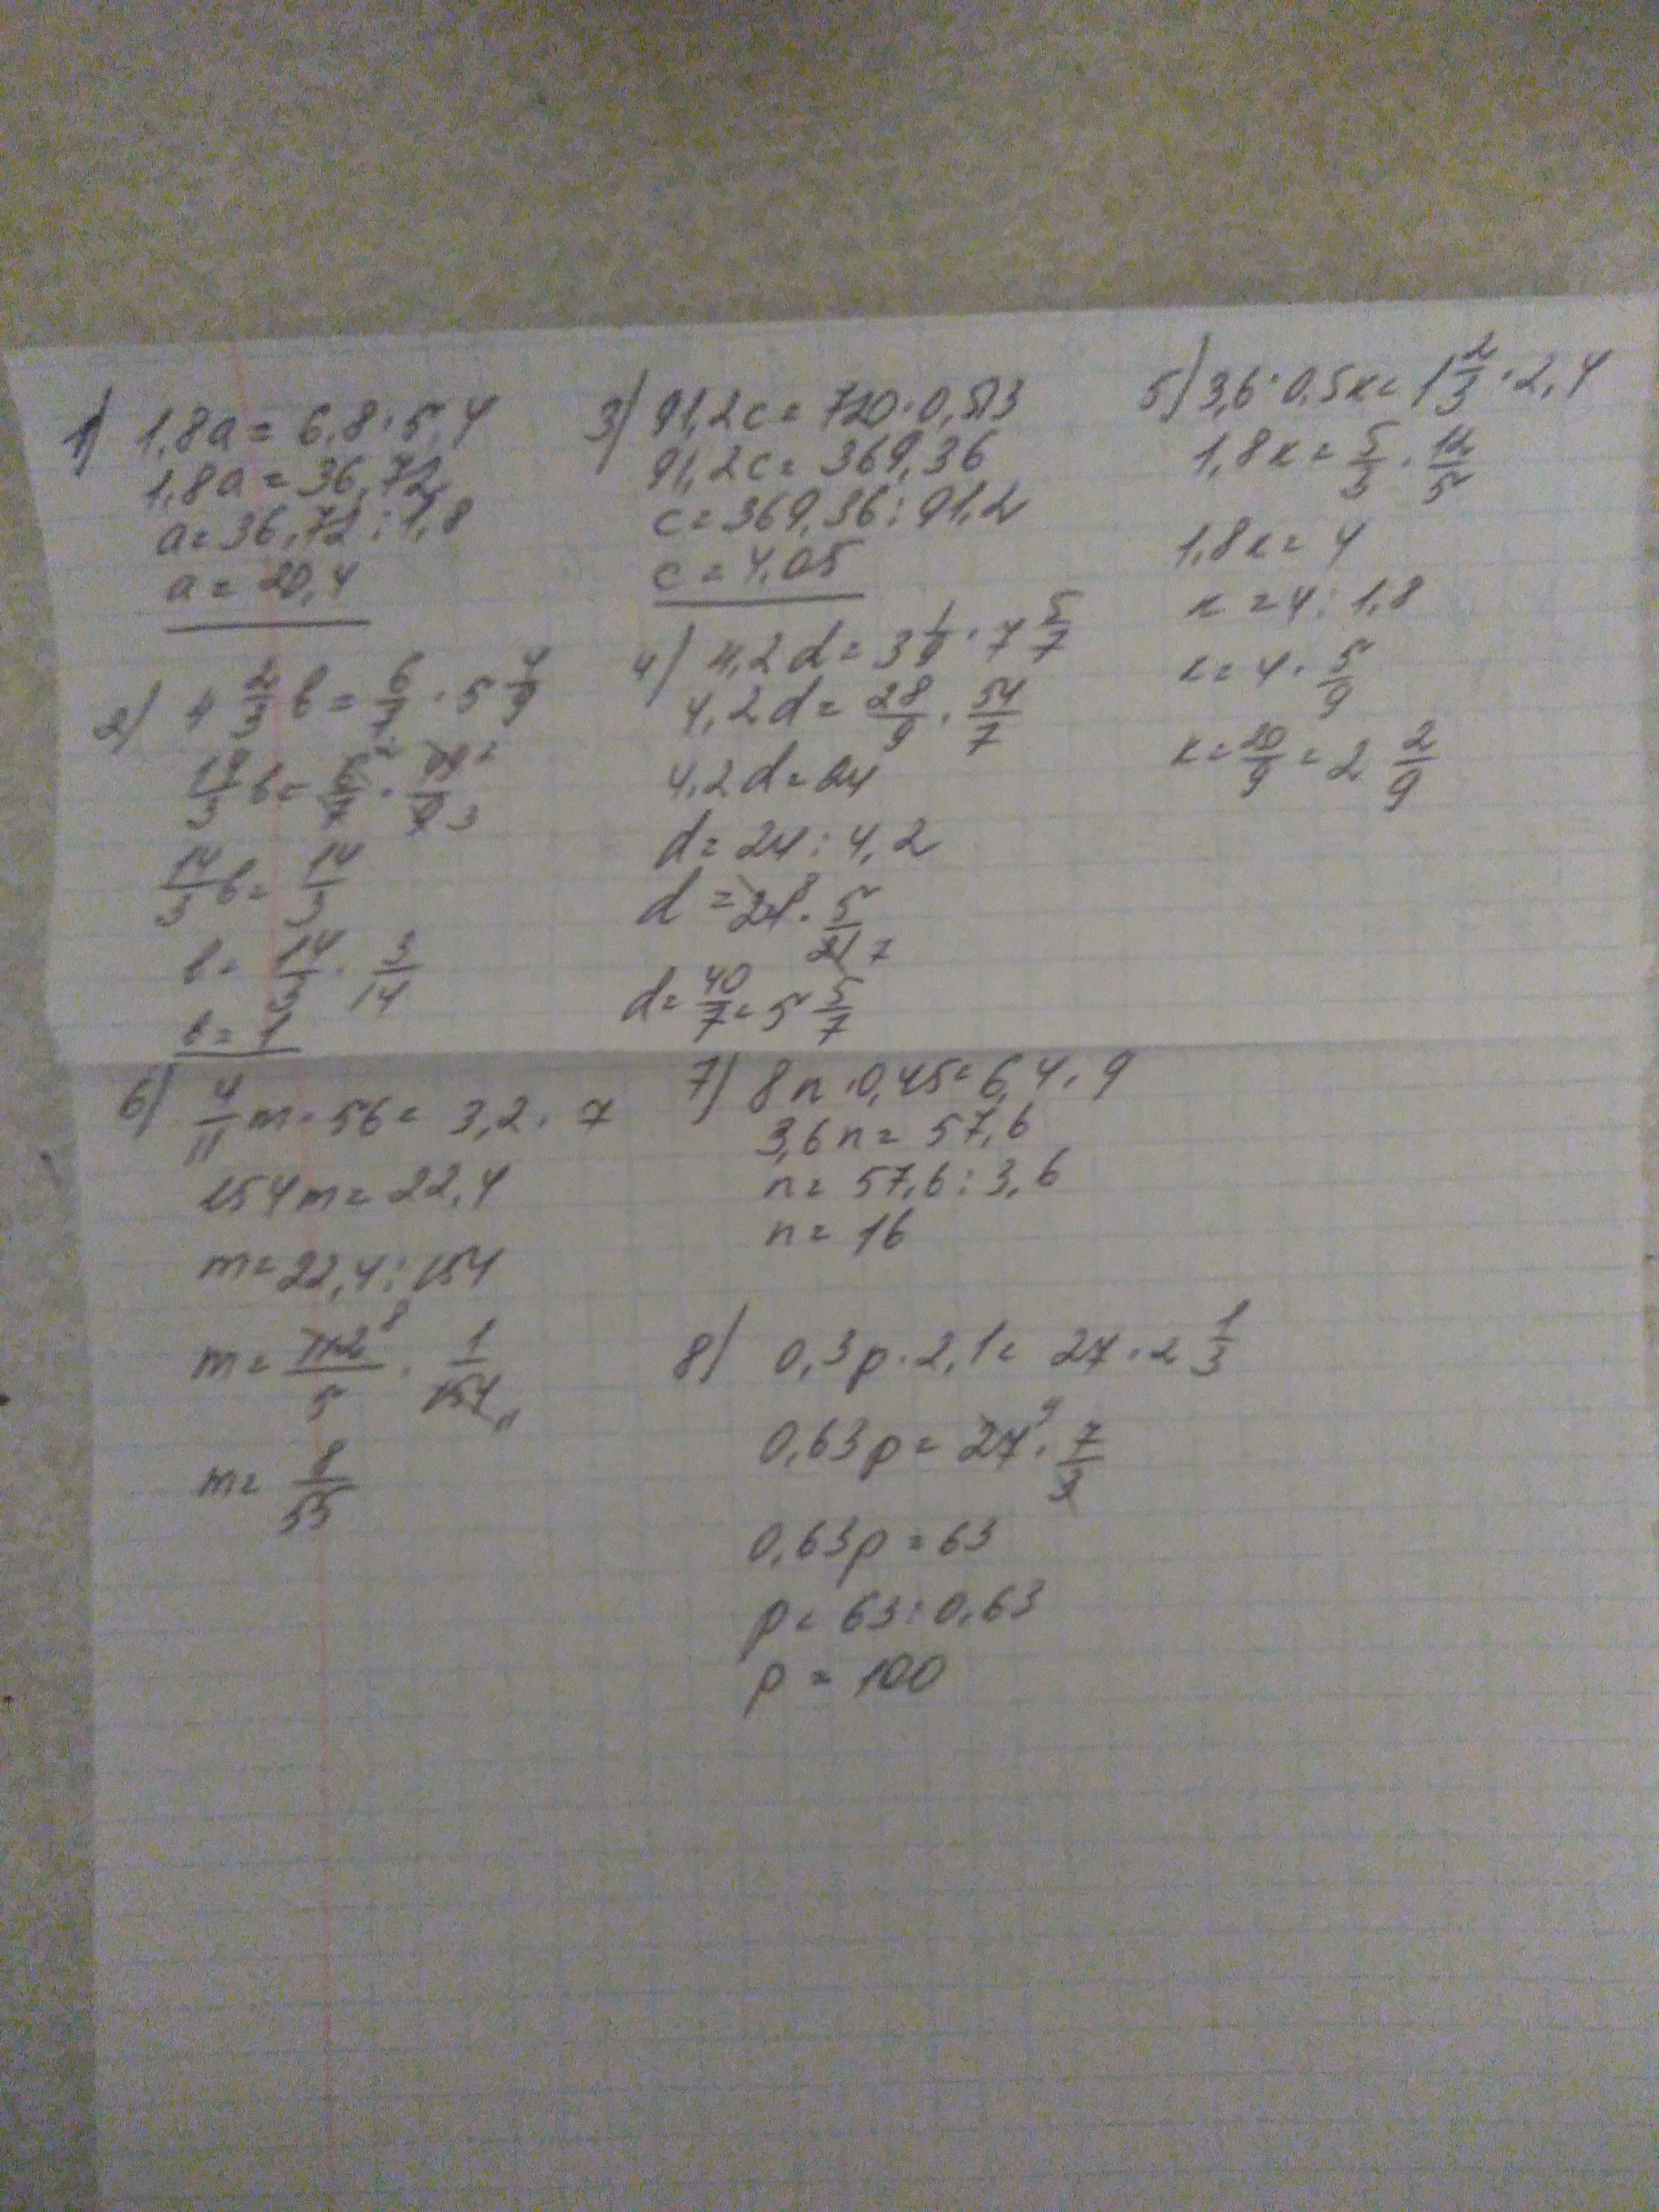 1) 1,8a = 6,8 · 5,4
1,8a = 36,72
a = 36,72 : 1,8
a = 20,4
2) 4 2/3 b = 6/7 · 5 4/9
14/3 b = 6/7 · 49/9
14/3 b = 14/3
b = 14/3 · 3/14
b = 1
3) 91,2c = 720 · 0,513
91,2c = 369,36
c = 369,36 : 91,2
c = 4,05
4) 4,2d = 3 1/9 · 7 5/7
4,2d = 28/9 · 54/7
4,2d = 24
d = 24 : 4,2
d = 24 8 · 5/21 7
d = 40/7 = 5 5/7
5) 3,6 · 0,5x = 1 2/3 · 2,4
1,8x = 5/3 · 12/5
1,8x = 4
x = 4 : 1,8
x = 4 · 5/9
x = 20/9 = 2 2/9
6) 4/11 m · 56 = 3,2 · 7
154m = 22,4
m = 22,4 : 154
m = 112 8/5 · 1/154 11
m = 8/55
7) 8n · 0,45 = 6,4 · 9
3,6n = 57,6
n = 57,6 : 3,6
n = 16
8) 0,3p · 2,1 = 27 · 2 1/3
0,63p = 27 9 · 7/3
0,63p = 63
p = 63 : 0,63
p = 100